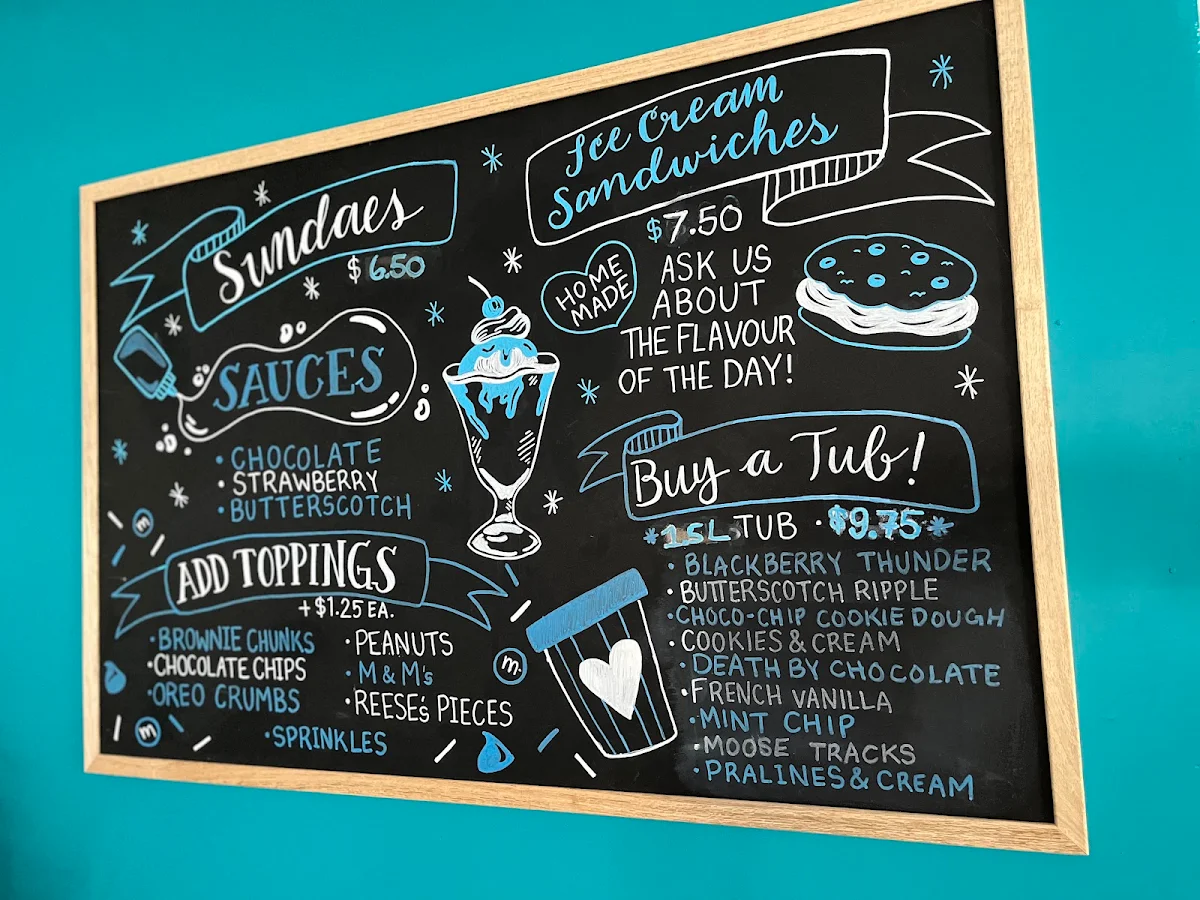 Sundaes
$ 6.50
SAUCES
• CHOCOLATE
• STRAWBERRY
• BUTTERSCOTCH
ADD TOPPINGS
+ $1.25 EA.
• BROWNIE CHUNKS
• CHOCOLATE CHIPS
• OREO CRUMBS
• PEANUTS
• M & M's
• REESE's PIECES
• SPRINKLES
m
m
m.
Ice Cream
Sandwiches
$7.50
HOME
MADE
ASK US
ABOUT
THE FLAVOUR
OF THE DAY!
Buy a Tub!
*1.5L TUB • $9.75*
• BLACKBERRY THUNDER
• BUTTERSCOTCH RIPPLE
• CHOCO-CHIP COOKIE DOUGH
• COOKIES & CREAM
• DEATH BY CHOCOLATE
• FRENCH VANILLA
• MINT CHIP
• MOOSE TRACKS
• PRALINES & CREAM